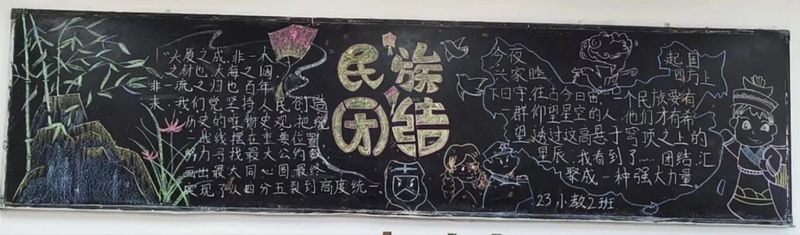 “大厦之成,非一木
之材也;大海之阔,
非一流之归也”。百年
来,我们党坚持人民创造
历史的唯物史观,把统
一战线摆在最重要位置
努力寻找最大公约数
画出最大同心圆最终
实现了从四分五裂到高度统一
民族
团结
今夜 起国
六家睦 四方上
下曰宇,往古今曰宙,一个民族要有一
群仰望星空的人,他们才有希
望.透过这高悬于穹顶之上的
星辰,我看到了……团结,汇
聚成一种强大力量
23小教2班